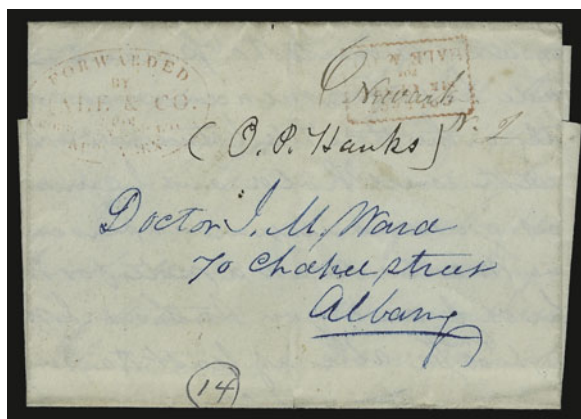 FORWARDED
BY
HALE & CO.
HALE &
Newark
N. J
(O. P. Hanks)
Doctor J. M. Ward
70 Chapel street
Albany
14